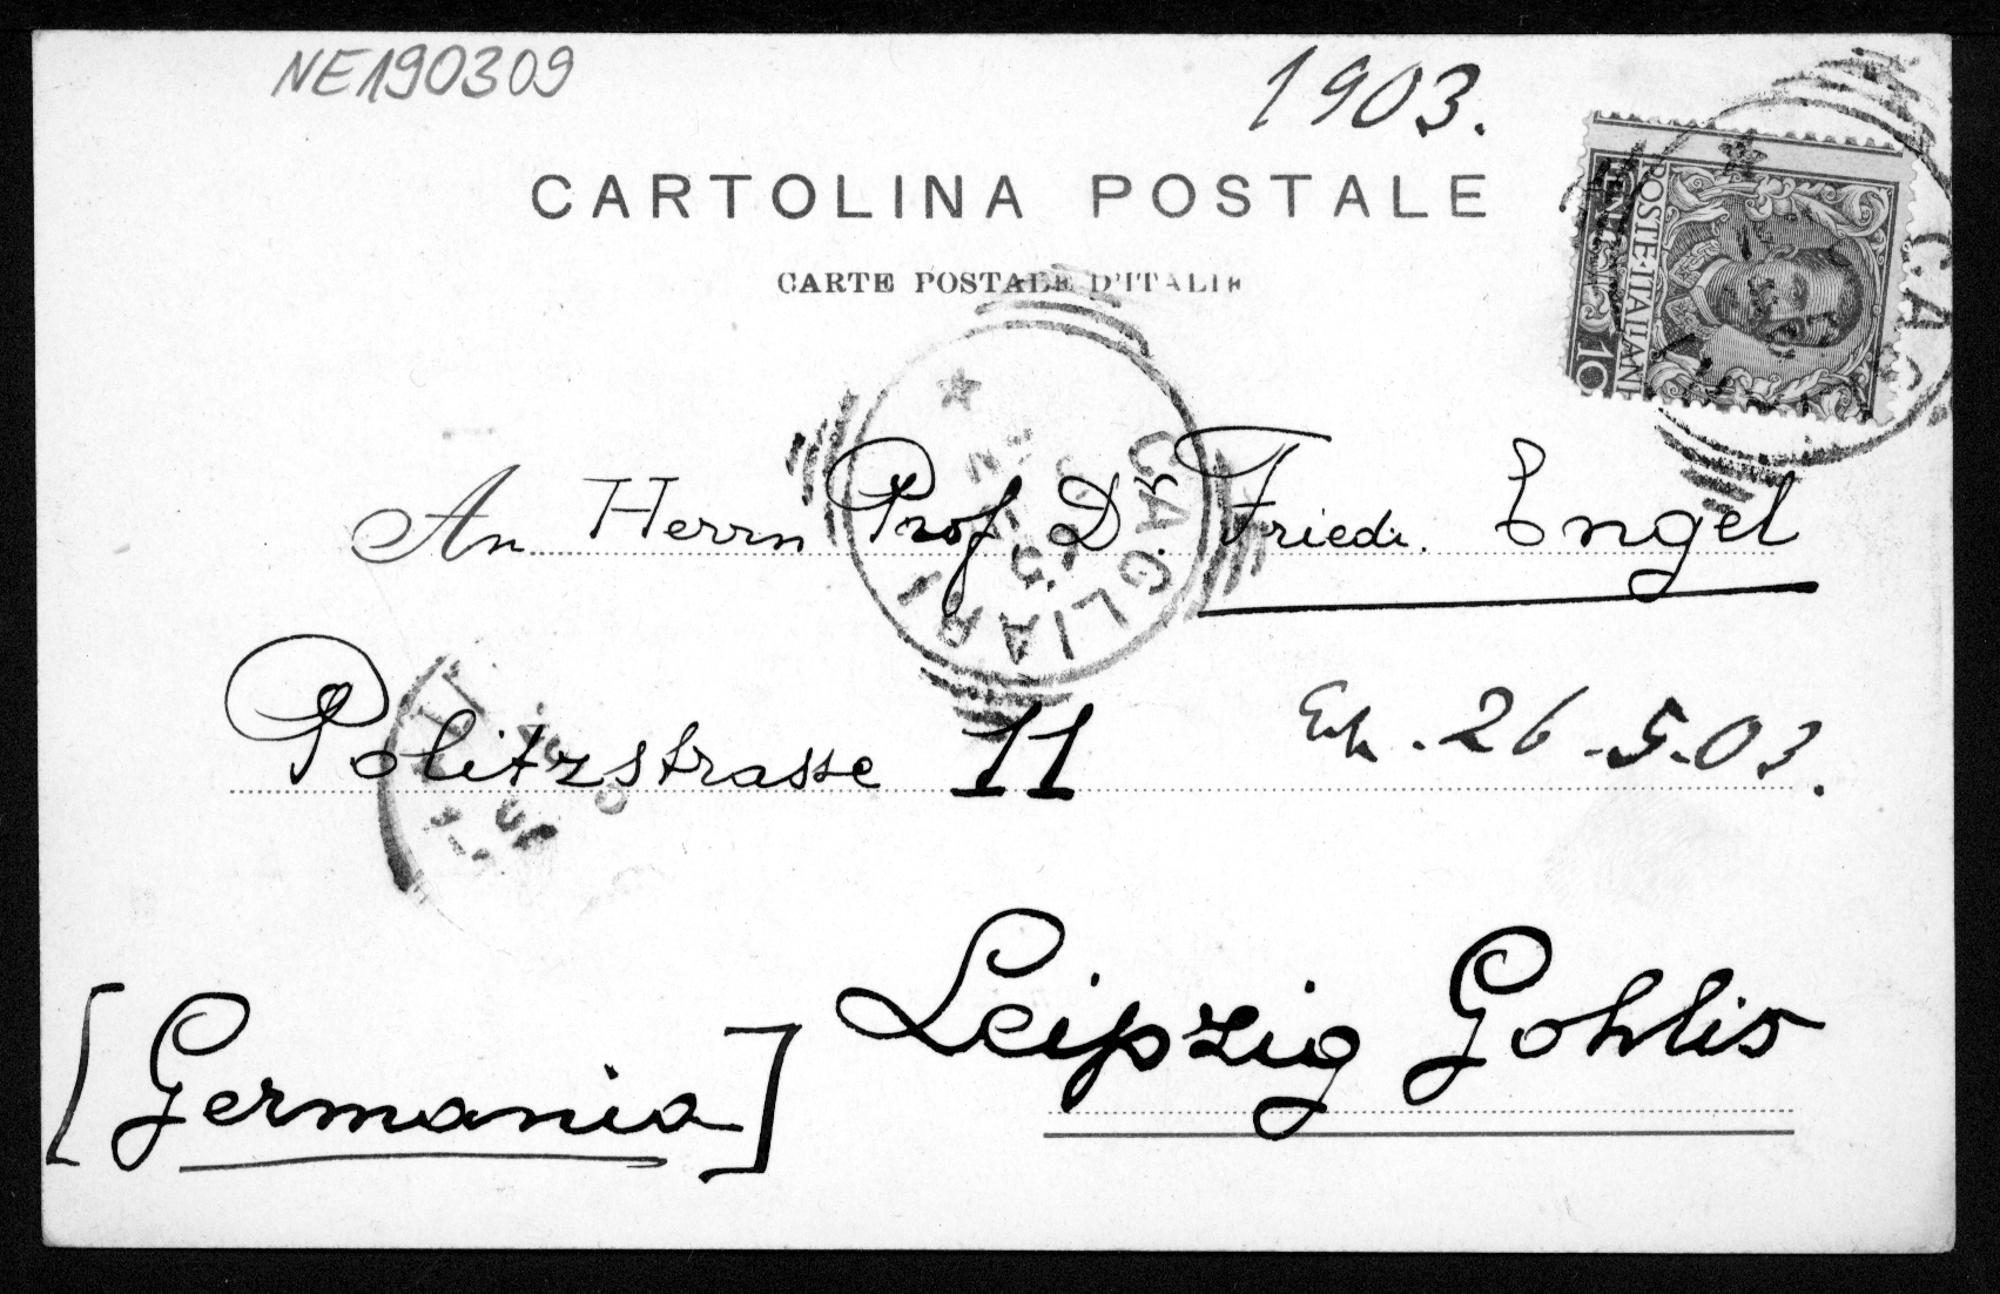 NE190309
1903.
CARTOLINA POSTALE
CARTE POSTALE D'ITALIE
POSTE·ITALIANE
10
CAG
CAGLIARI
An Herrn Prof. Dr. Friedr. Engel
Politzstrasse 11
26.5.03.
Leipzig Gohlis
[Germania]